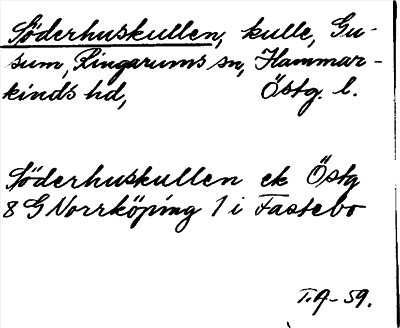 Söderhuskullen, kulle, Gu-
sum, Ringarums sn, Hammar-
kinds hd, Östg. l.
Söderhuskullen ek Östg
8 G Norrköping 1 i Fastebo
T.A-59.